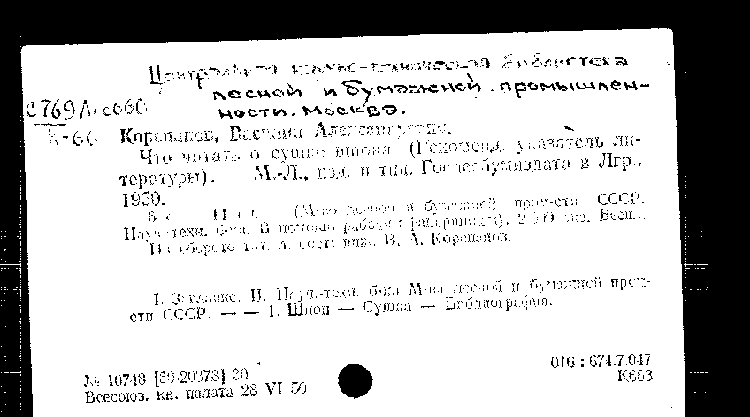 Центральная научно-техническая библиотека
лесной и бумажной промышлен-
ности. Москва.
С 769/
К-66
Корепанов, Александрович.
Что читать о сушке шпона (Рекоменд. указатель ли-
тературы). М.-Л., изд. и тип. Гослесбумиздата в Лгр.,
1950.
8 с. (М-во лесной и бумажной пром-сти СССР.
Науч.-техн. б-ка. В помощь экз. Беспл.
На обороте тит. л. сост. инж. В. А. Корепанов.
I. Заглавие. II. Науч.-техн. б-ка М-ва лесной и бумажной пром-
сти СССР. — — 1. Шпон — Сушка — Библиография.
016 : 674.7.047
№ 10748 [50-20373] 30
К663
Всесоюз. кн. палата 28 VI 50